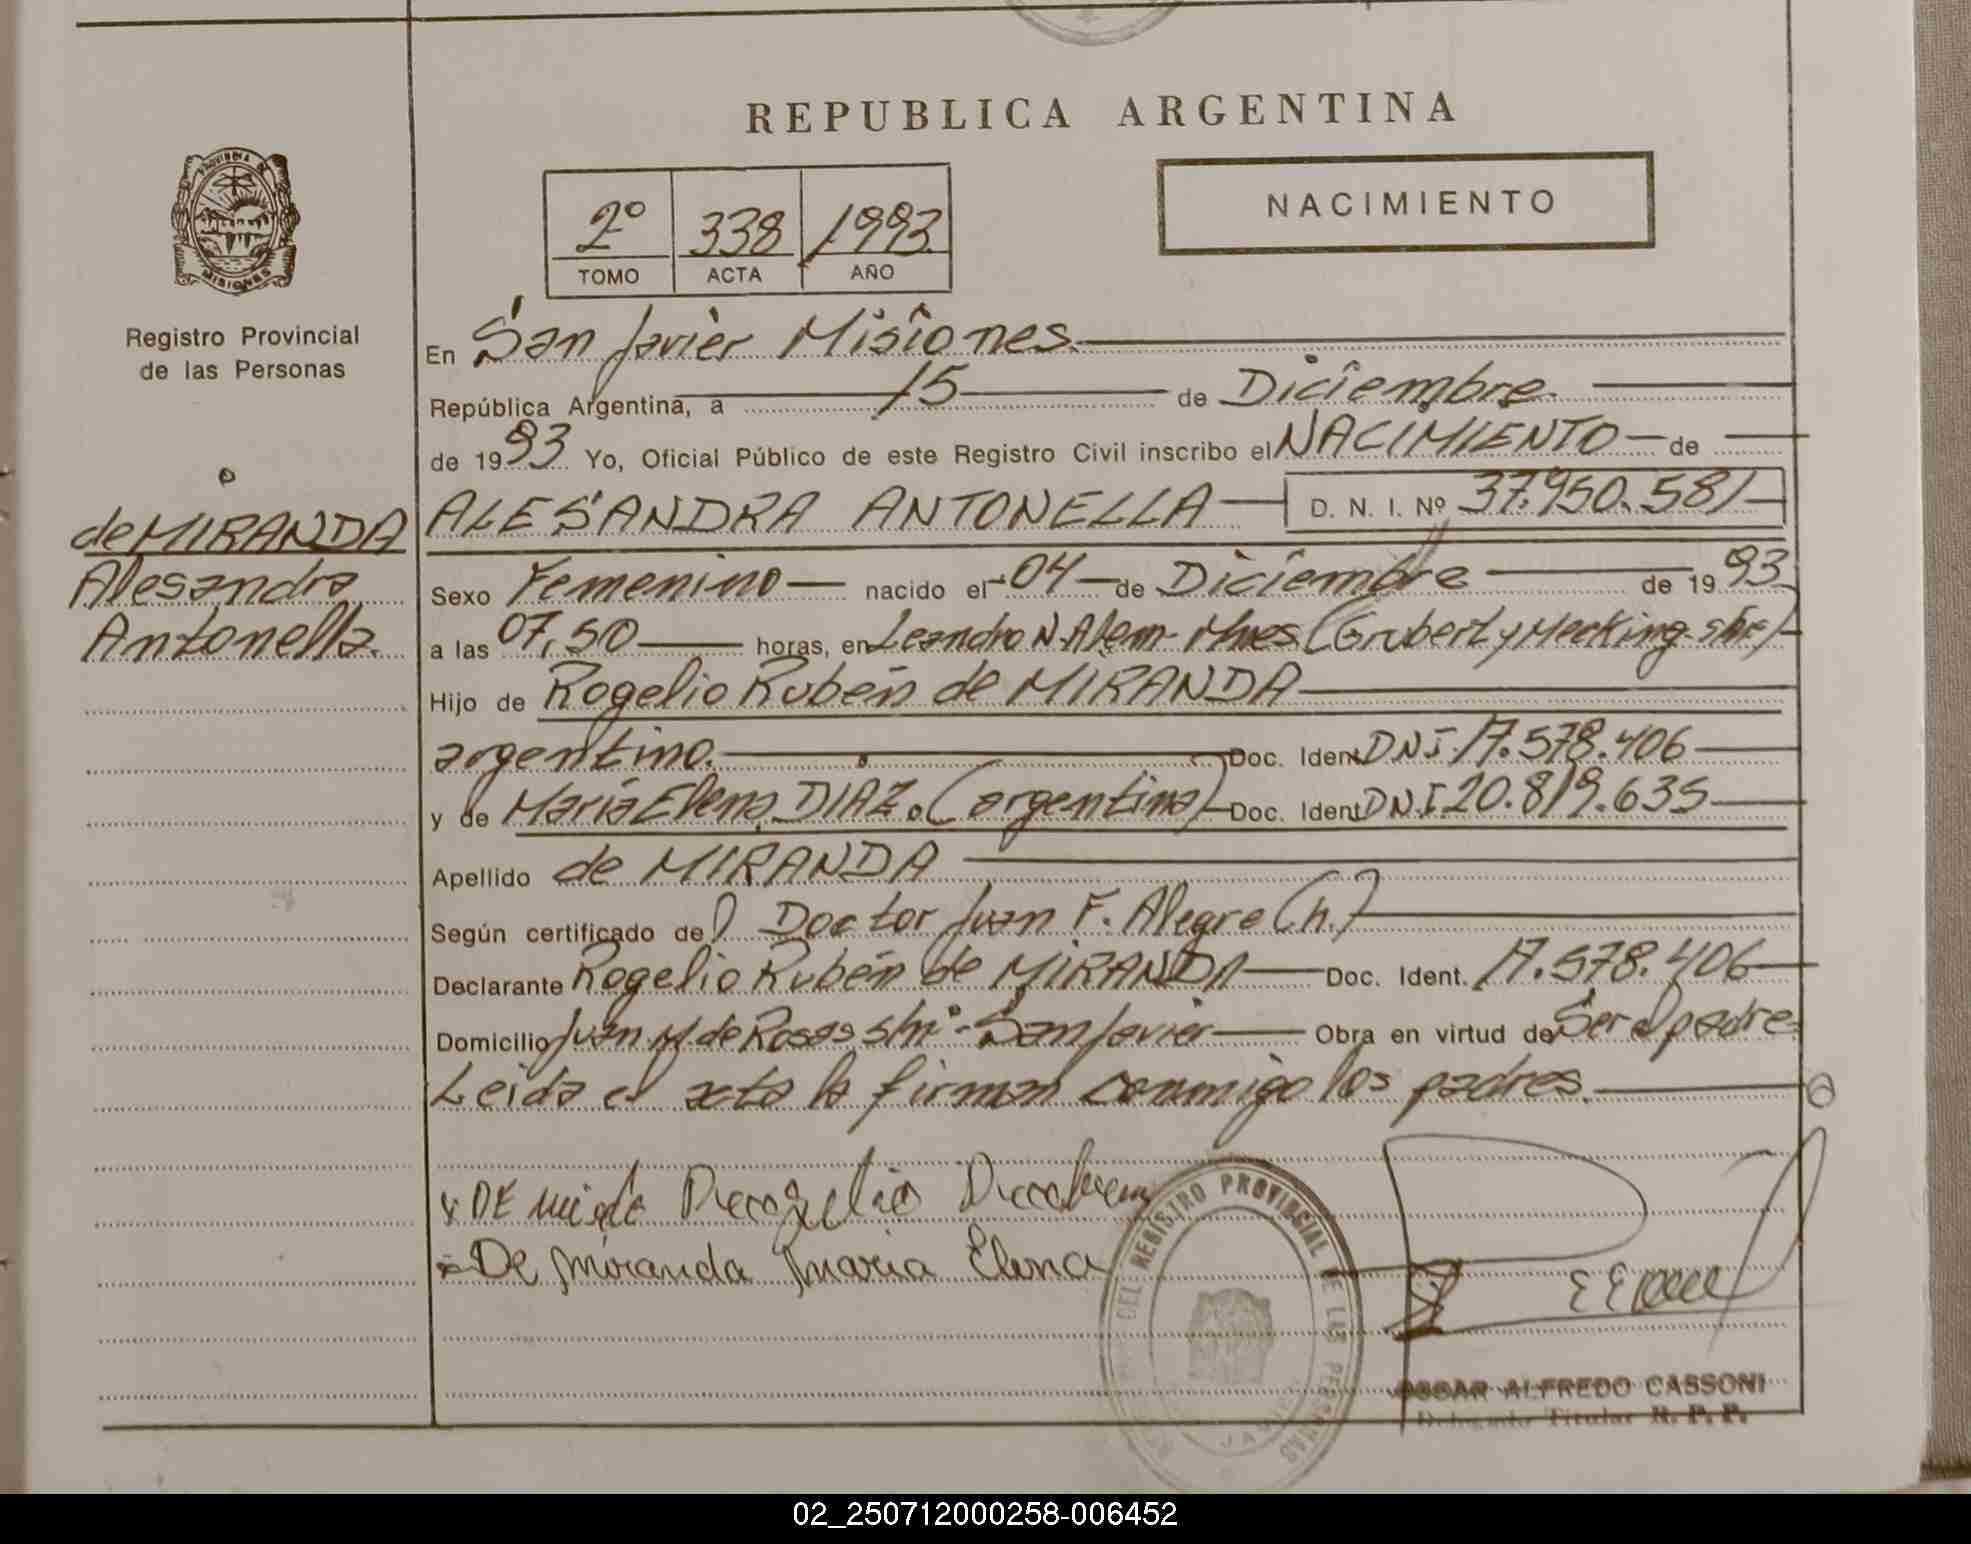 REPUBLICA ARGENTINA
PROVINCIA DE
MISIONES
Registro Provincial
de las Personas
2º 338 1993
TOMO ACTA AÑO
NACIMIENTO
En San Javier Misiones.
República Argentina, a 15 de Diciembre.
de 1993 Yo, Oficial Público de este Registro Civil inscribo el NACIMIENTO de
de MIRANDA
Alesandra
Antonella.
ALESANDRA ANTONELLA D. N. I. Nº 37.950.581
Sexo Femenino nacido el 04 de Diciembre de 1993
a las 07,50 horas, en Leandro N. Alem- Mnes (Grubert y Mecking- s/nº)
Hijo de Rogelio Rubén de MIRANDA
argentino. Doc. Ident DNI. 17.578.406
y de María Elena DIAZ. (argentina) Doc. Ident DNI. 20.819.635
Apellido de MIRANDA
Según certificado del Doctor Juan F. Alegre (h.)
Declarante Rogelio Rubén de MIRANDA Doc. Ident. 17.578.406
Domicilio Juan M. de Rosas s/nº- San Javier Obra en virtud de Ser el padre.
Leida el acta la firman conmigo los padres.
De Miranda Maria Elena
DEL REGISTRO PROVINCIAL DE LAS PERSONAS
OSCAR ALFREDO CASSONI
Delegado Titular R. P. P.
02_250712000258-006452